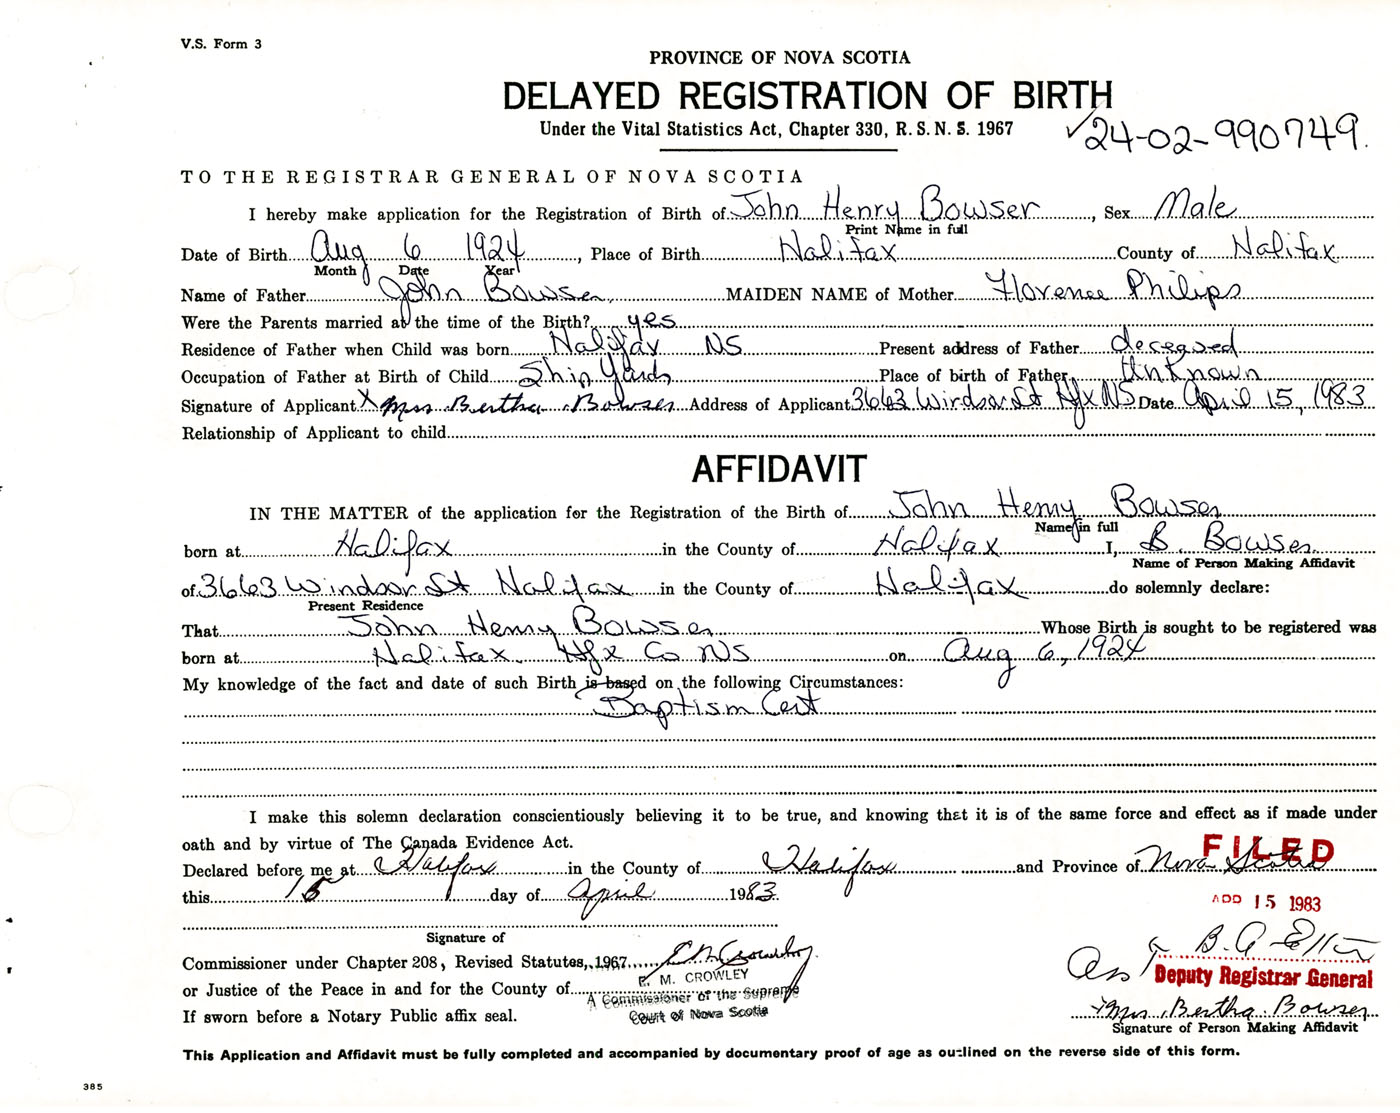 V.S. Form 3
PROVINCE OF NOVA SCOTIA
DELAYED REGISTRATION OF BIRTH
Under the Vital Statistics Act, Chapter 330, R.S.N.S. 1967
✓24-02-990749.
TO THE REGISTRAR GENERAL OF NOVA SCOTIA
I hereby make application for the Registration of Birth of John Henry Bowser, Sex Male
Print Name in full
Date of Birth Aug 6 1924, Place of Birth Halifax County of Halifax
Month Date Year
Name of Father John Bowser MAIDEN NAME of Mother Florence Philips
Were the Parents married at the time of the Birth? yes
Residence of Father when Child was born Halifax NS Present address of Father deceased
Occupation of Father at Birth of Child Ship Yards Place of birth of Father Unknown
Signature of Applicant x Mrs Bertha Bowser Address of Applicant 3663 Windsor St Hfx NS Date April 15, 1983
Relationship of Applicant to child
AFFIDAVIT
IN THE MATTER of the application for the Registration of the Birth of John Henry Bowser
Name in full
born at Halifax in the County of Halifax I, B. Bowser
Name of Person Making Affidavit
of 3663 Windsor St Halifax in the County of Halifax do solemnly declare:
Present Residence
That John Henry Bowser Whose Birth is sought to be registered was
born at Halifax Hfx Co NS on Aug 6, 1924
My knowledge of the fact and date of such Birth is based on the following Circumstances:
Baptism Cert
I make this solemn declaration conscientiously believing it to be true, and knowing that it is of the same force and effect as if made under
oath and by virtue of The Canada Evidence Act.
FILED
Declared before me at Halifax in the County of Halifax and Province of Nova Scotia
this 15 day of April 1983
15 1983
Signature of
Commissioner under Chapter 208, Revised Statutes, 1967
or Justice of the Peace in and for the County of
If sworn before a Notary Public affix seal.
M. CROWLEY
A Commissioner of the Supreme
Court of Nova Scotia
Deputy Registrar General
Mrs. Bertha Bowser
Signature of Person Making Affidavit
This Application and Affidavit must be fully completed and accompanied by documentary proof of age as outlined on the reverse side of this form.
385